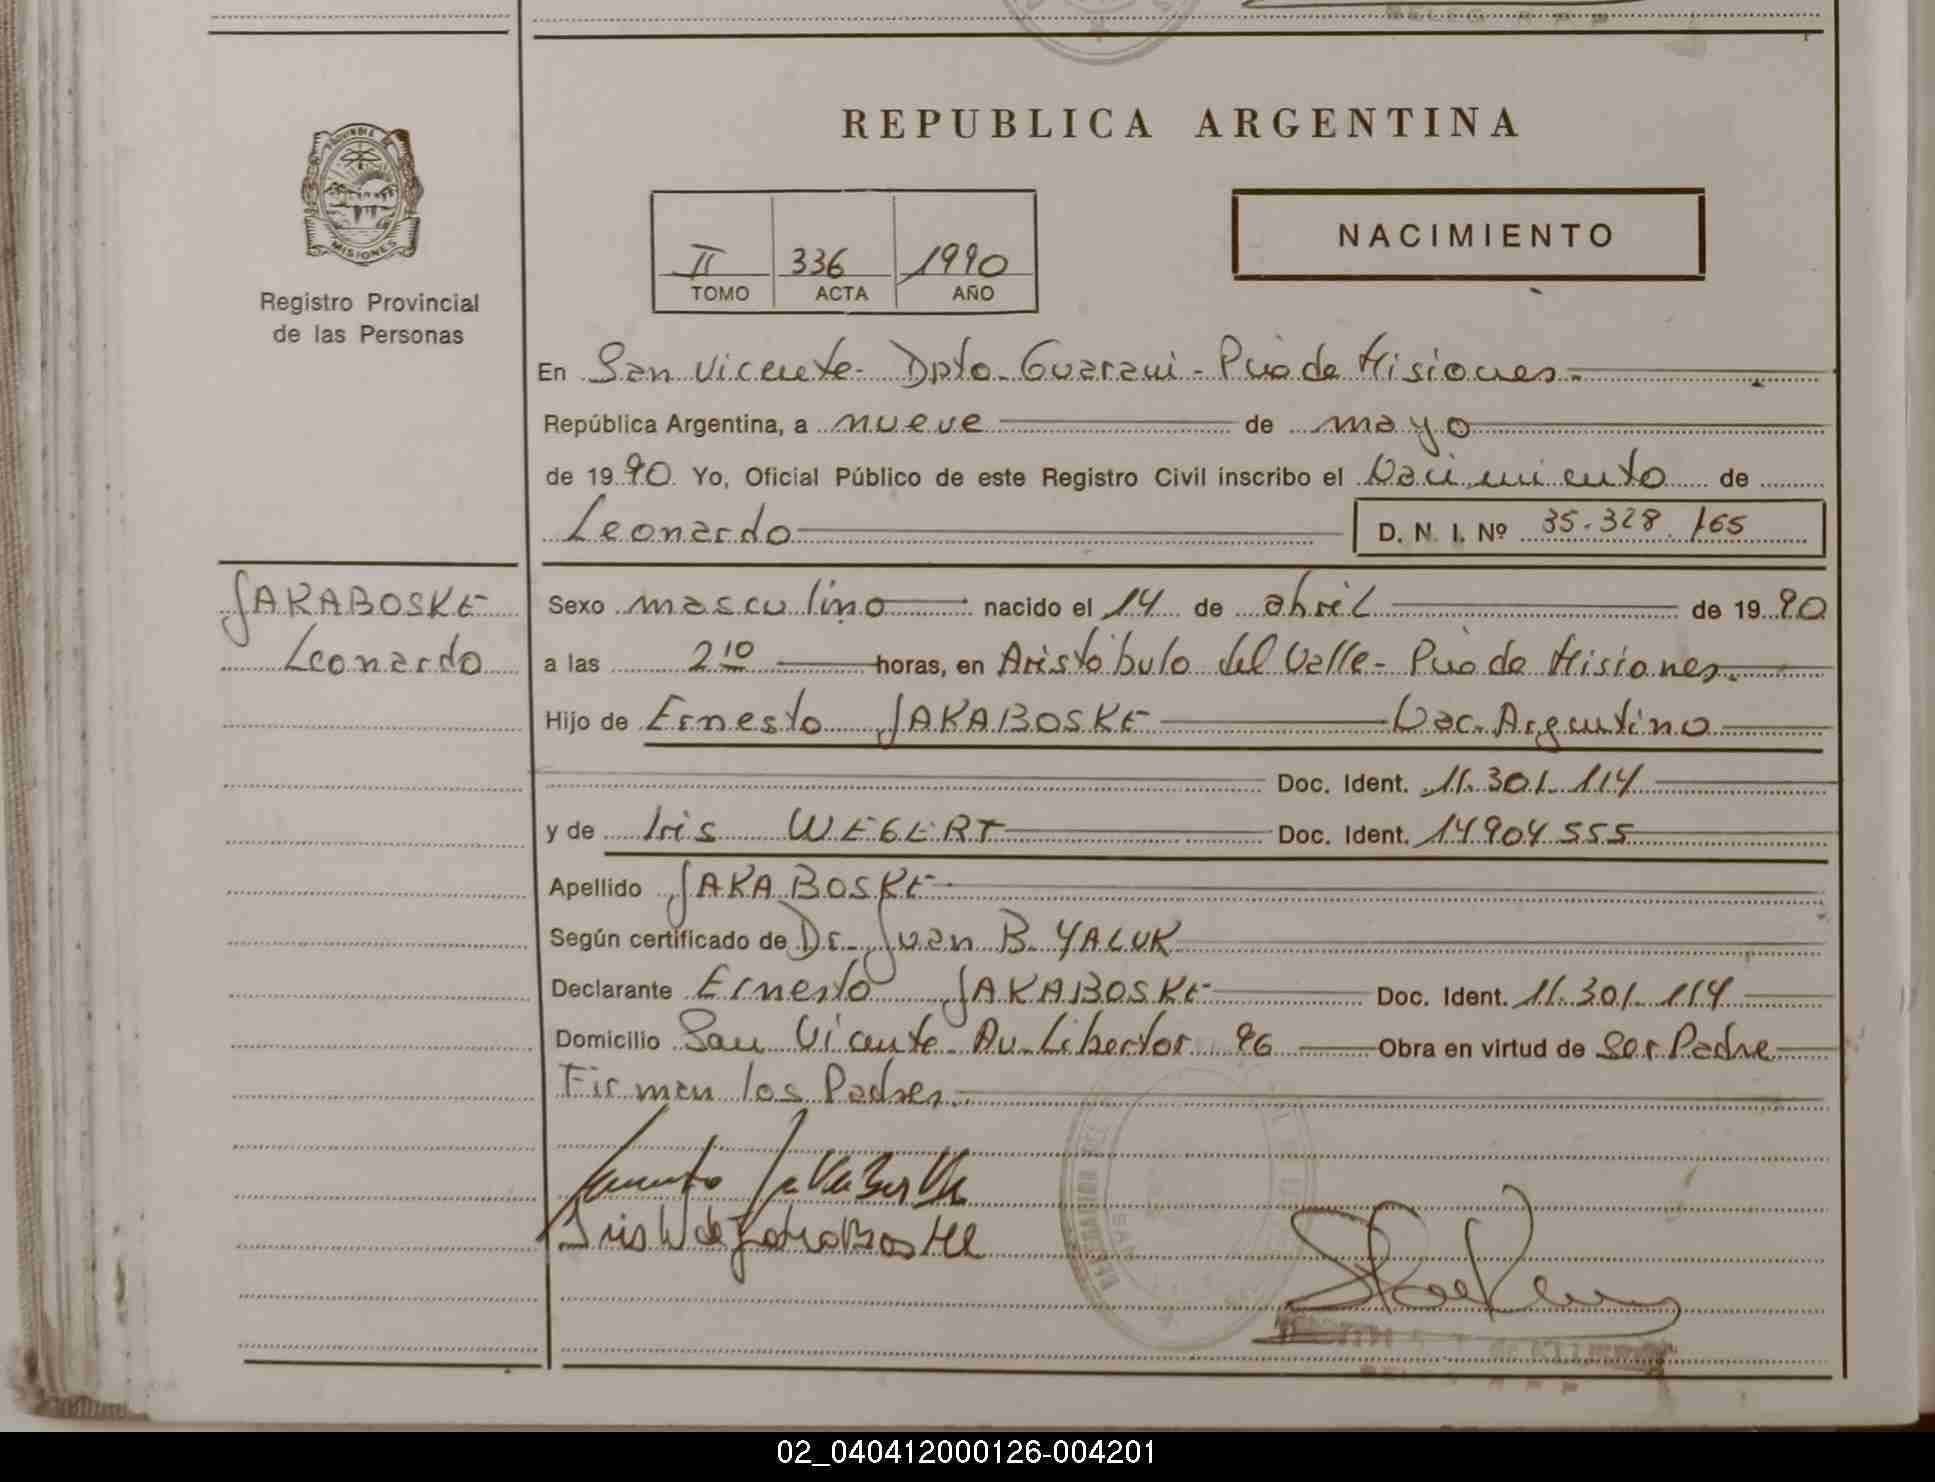 REPUBLICA ARGENTINA
PROVINCIA DE
MISIONES
Registro Provincial
de las Personas
II 336 1990
TOMO ACTA AÑO
NACIMIENTO
En San Vicente - Dpto. Guarani - Pcia de Misiones.-
República Argentina, a nueve de mayo
de 1990 Yo, Oficial Público de este Registro Civil inscribo el Nacimiento de
Leonardo D. N. I. Nº 35.328.165
JAKABOSKE
Leonardo
Sexo masculino nacido el 14 de abril de 1990
a las 2 10 horas, en Aristóbulo del Valle - Pcia de Misiones.
Hijo de Ernesto JAKABOSKE Nac. Argentino
Doc. Ident. 11.301.114
y de Iris WEGERT Doc. Ident. 14904555
Apellido JAKABOSKE
Según certificado de Dr. Juan B. YALUK
Declarante Ernesto JAKABOSKE Doc. Ident. 11.301.114
Domicilio San Vicente - Av. Libertor 96 Obra en virtud de Ser Padre
Firman los Padres.
Iris W de JakaBoske
02_040412000126-004201